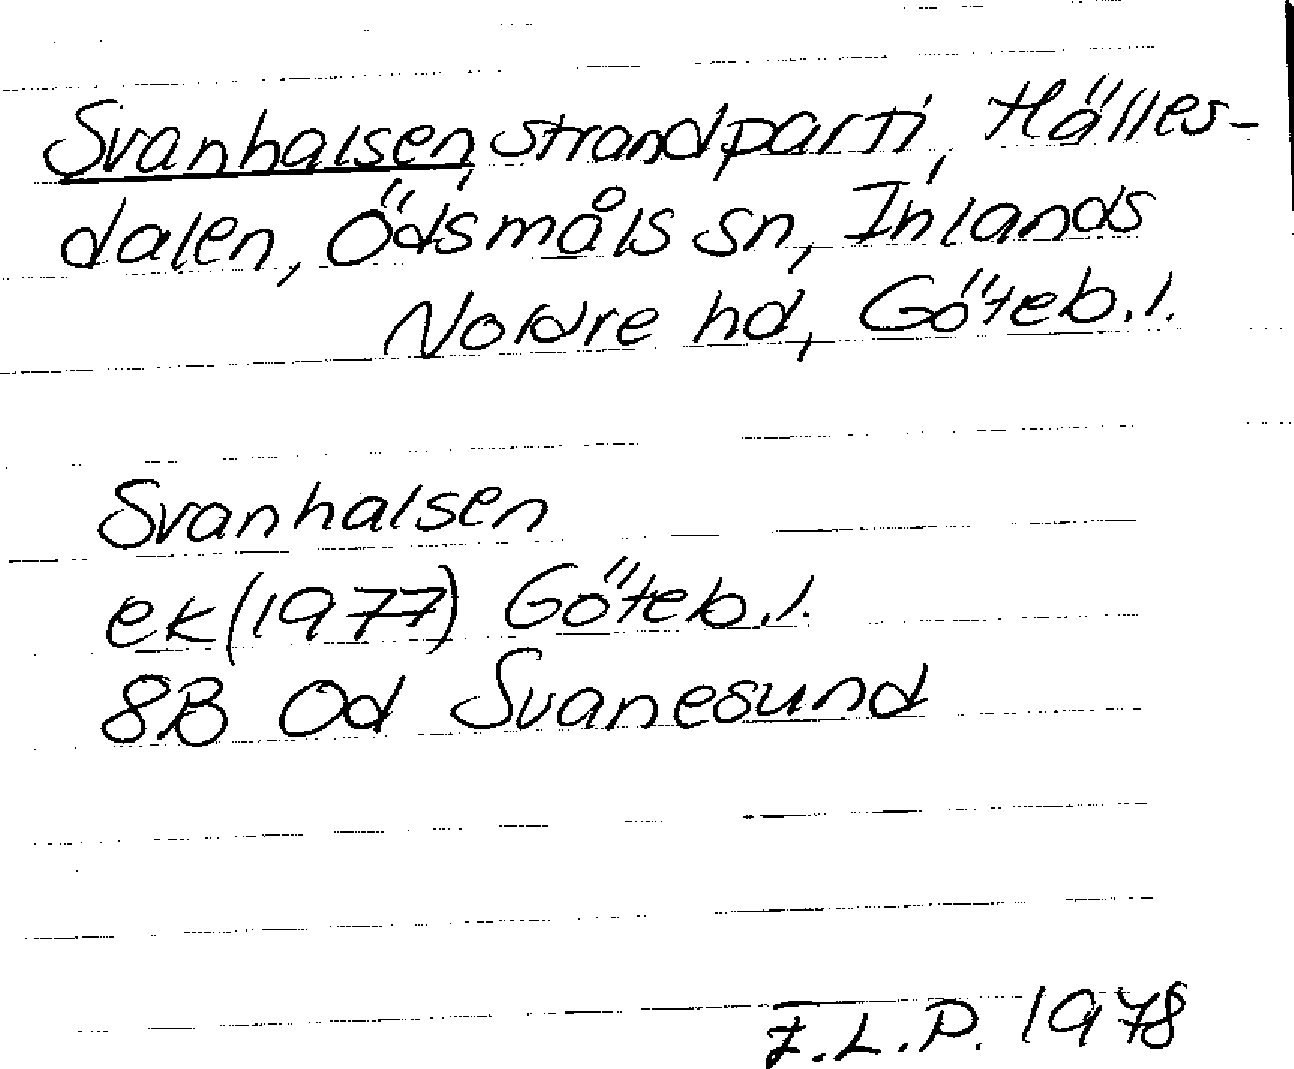 Svanhalsen, strandparti, Hälles-
dalen, Ödsmåls sn, Inlands
Nordre hd, Göteb.l.
Svanhalsen
ek (1977) Göteb.l.
8B Od Svanesund
L.P. 1978